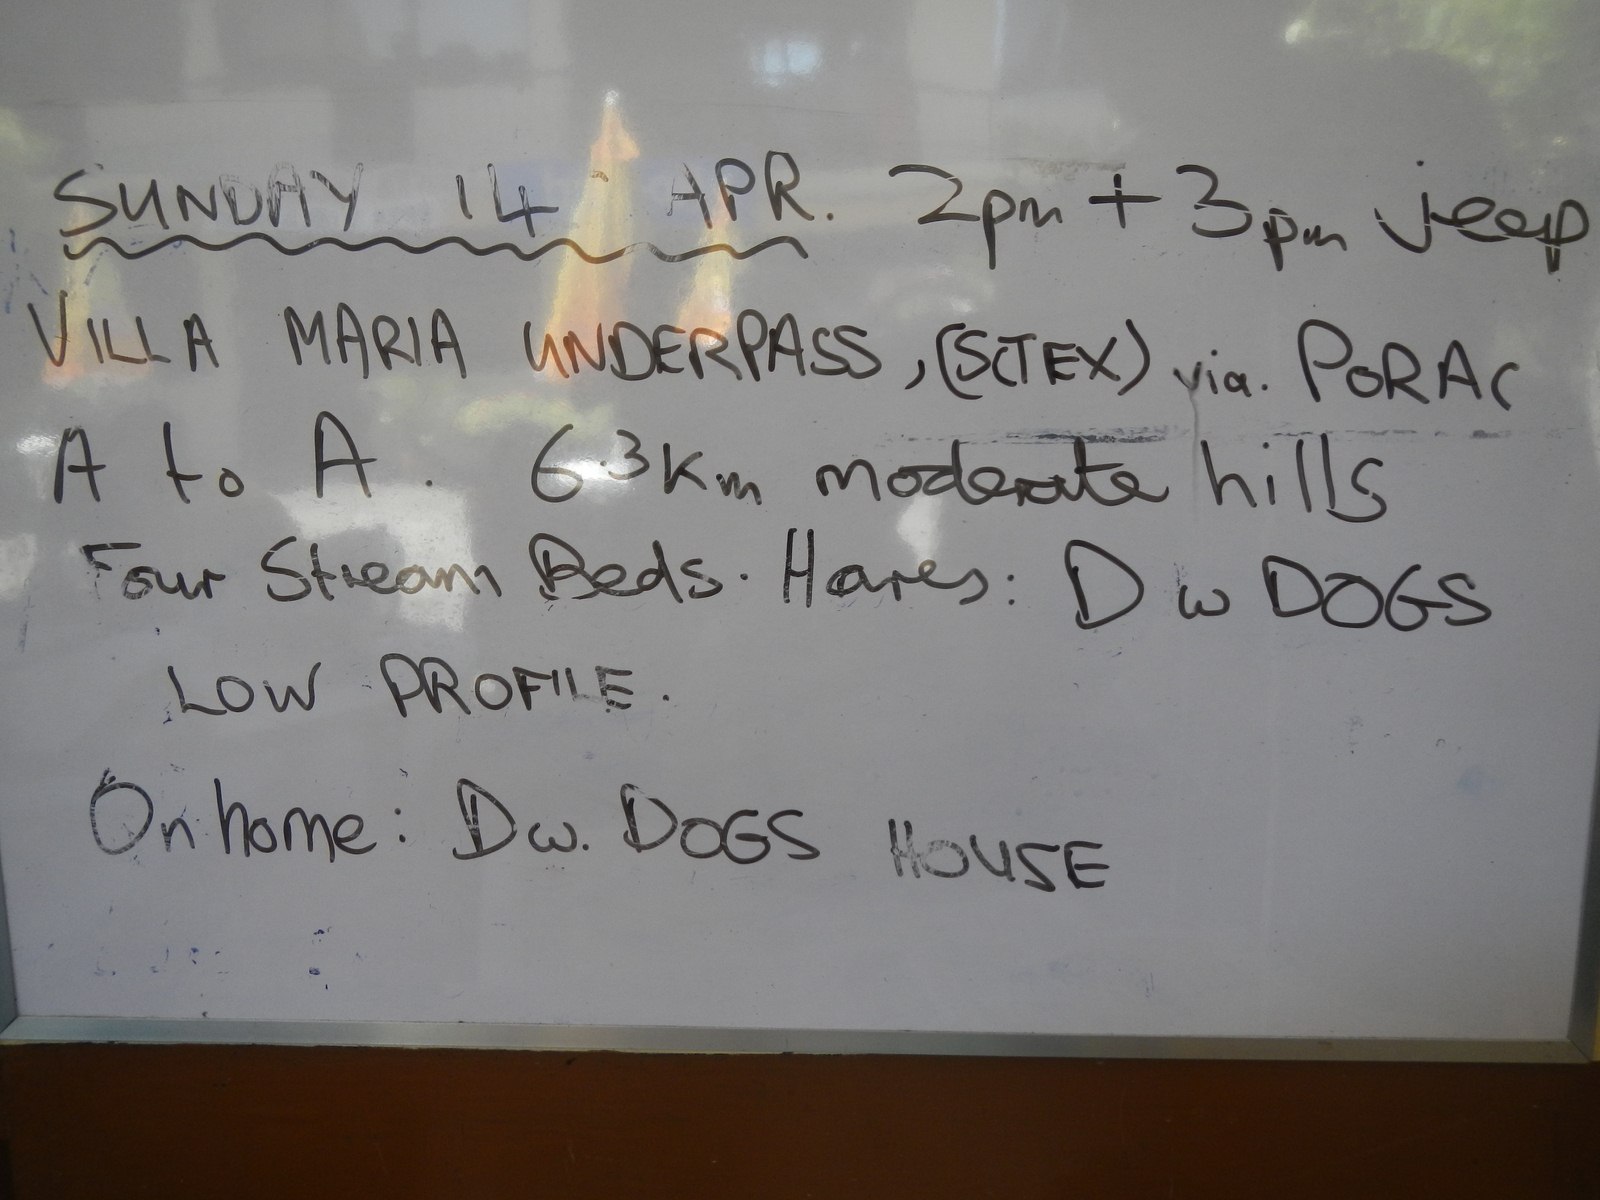 SUNDAY 14 APR. 2pm + 3pm jeep
VILLA MARIA UNDERPASS, (SCTEX) via. PORAC
A to A. 6.3km moderate hills
Four Stream Beds. Hares: D w DOGS
LOW PROFILE.
On home: Dw. DOGS HOUSE